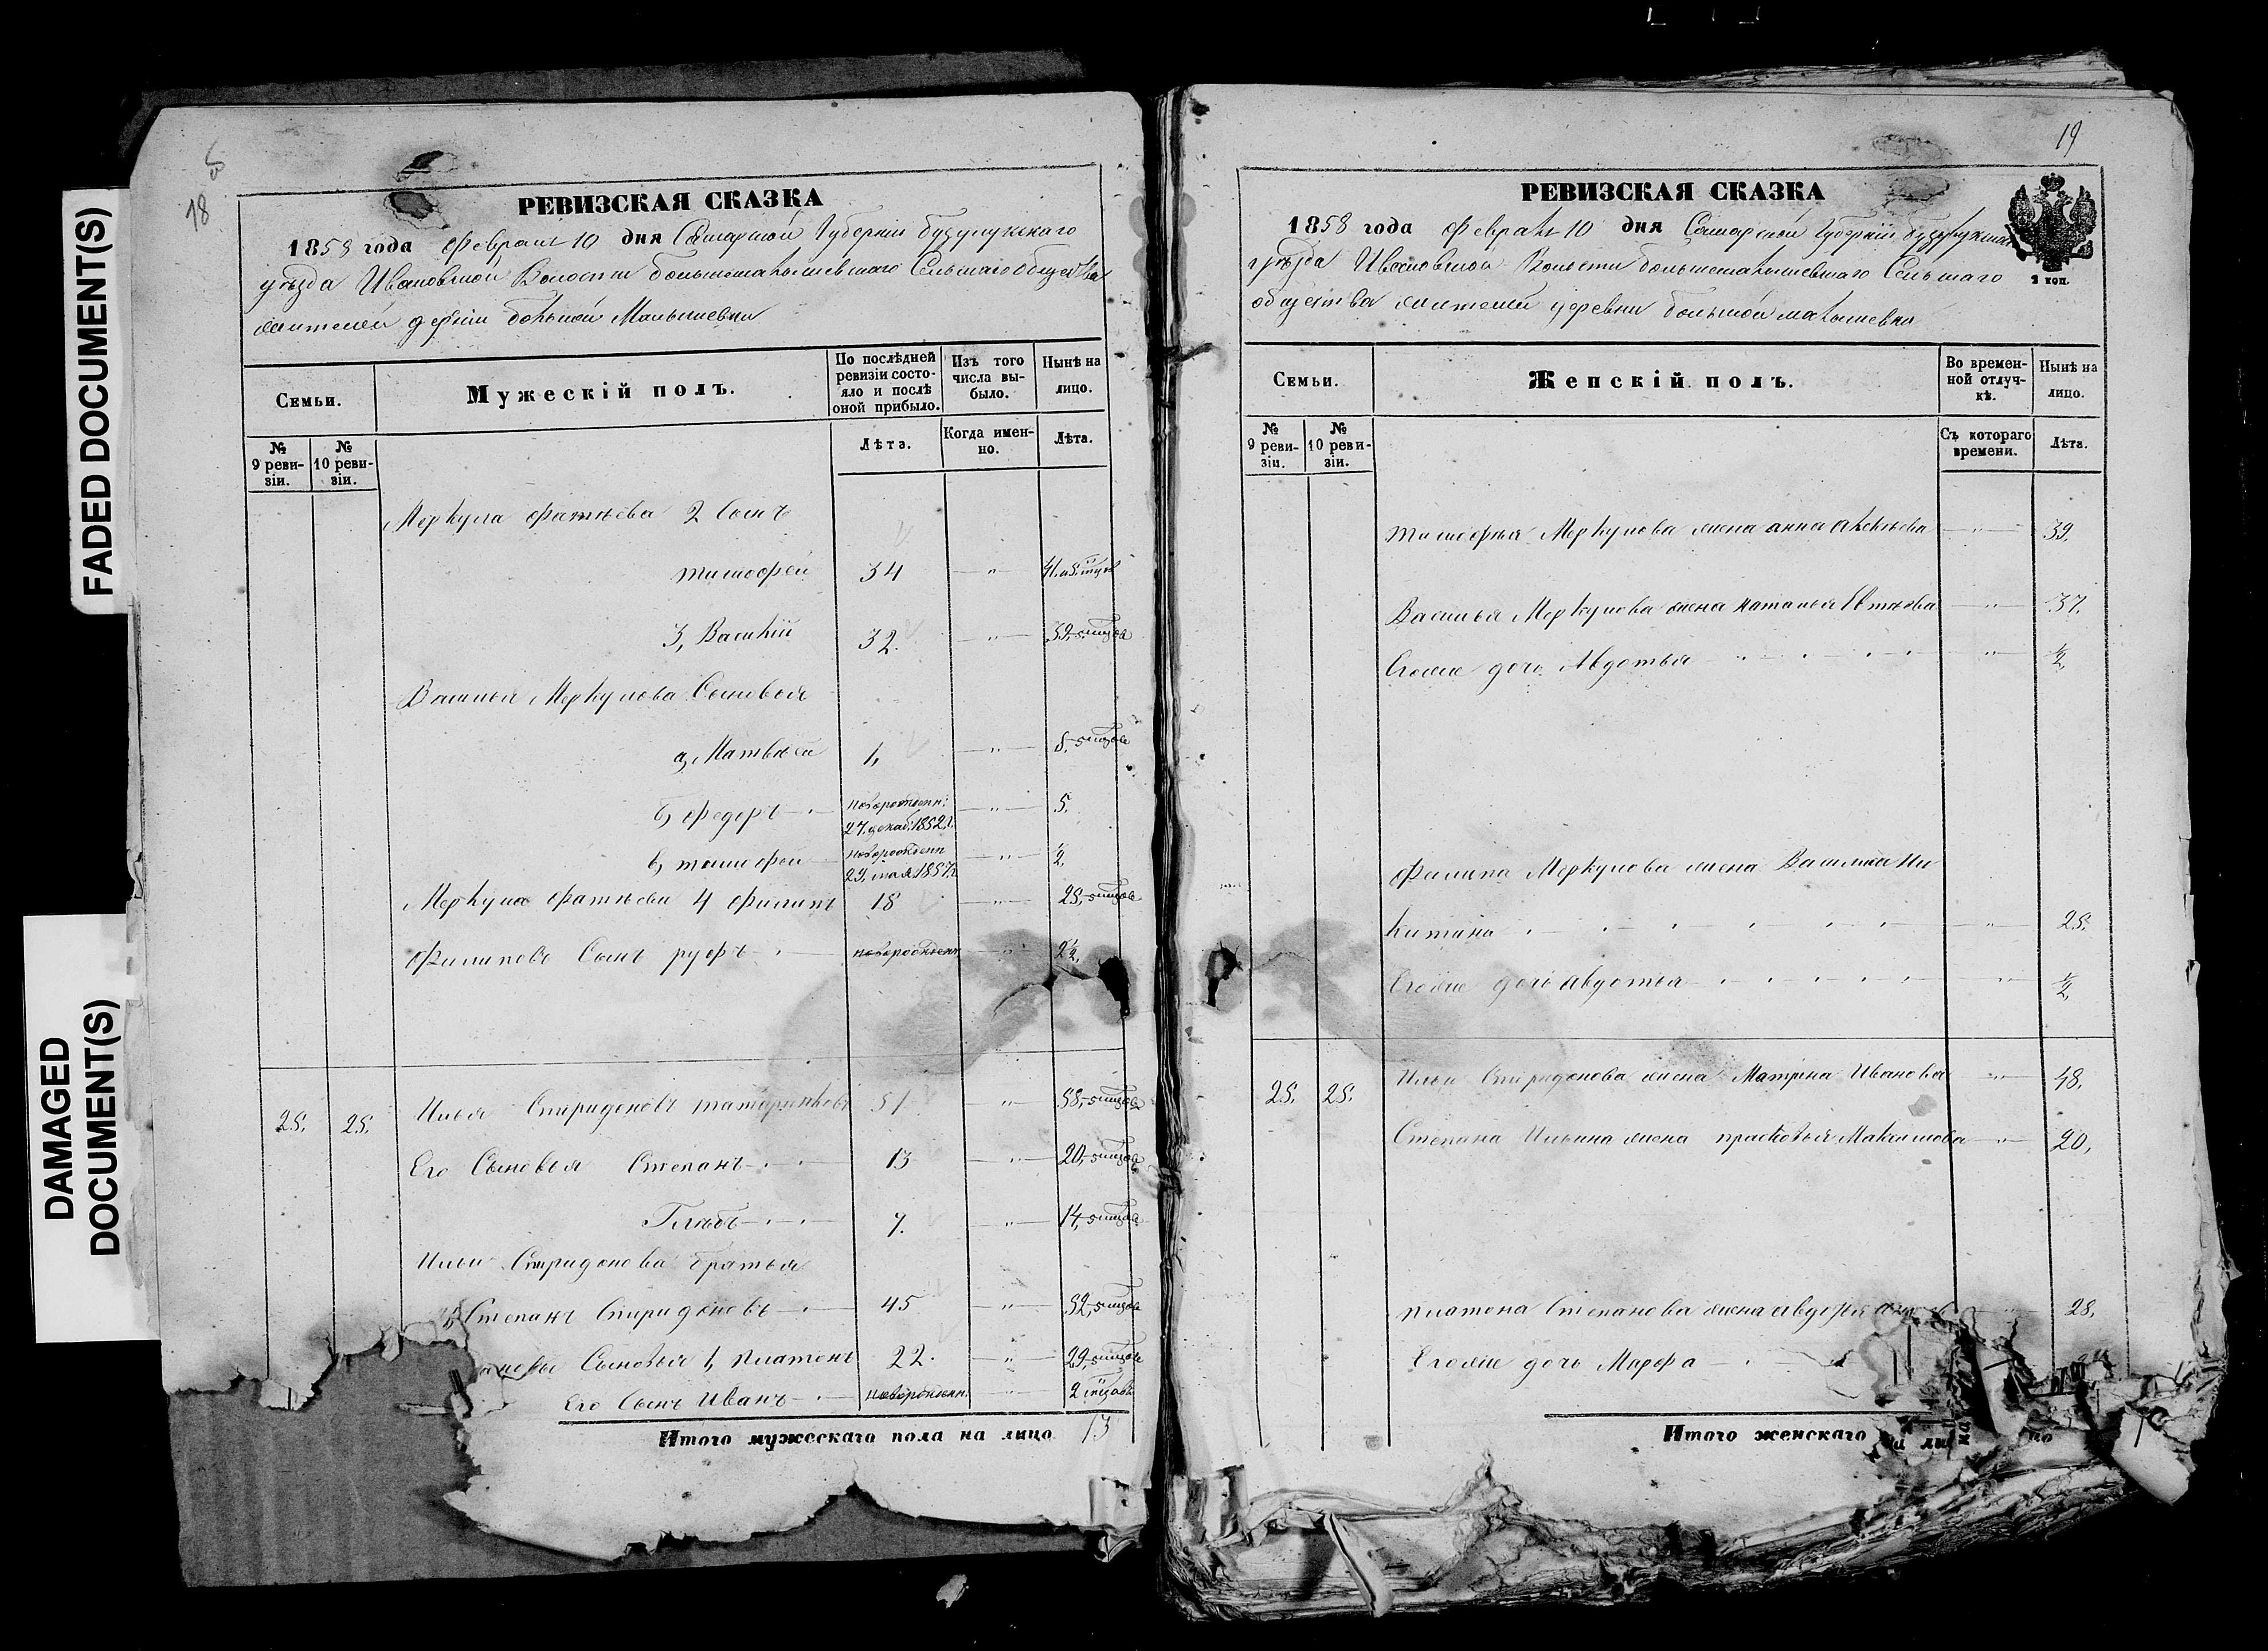 FADED DOCUMENT(S)
DAMAGED
DOCUMENT(S)
18
РЕВИЗСКАЯ СКАЗКА
1858 года февраля 10 дня Самарской Губерніи бузулукскаго
уѣзда Ивановской Волости большемалышевскаго Сельскаго общества
деревни большой Малышевки
Семьи.
Мужескій полъ.
По послѣдней ревизіи состояло и послѣ оной прибыло.
Изъ того числа выбыло.
Нынѣ на лицо.
№ 9 ревизіи.
№ 10 ревизіи.
Лѣта.
Когда именно.
Лѣта.
Меркула 2 Сынъ
тимофей 34 — " — 41
3, Василій 32. — " — 39
Василья Меркулова Сыновья
а, Матвѣй 1, — " — 8
б, федоръ новорожденн. 27 декаб. 1852 г. — " — 5.
в, тимофей новорожденн 29 мая 1857 г — " — ½
Меркула 4 филипъ 18 — " — 25
Филипова Сынъ руфъ новорожденн — " — 2½
25. 25. Илья Спиридоновъ 51 — " — 58
Его Сыновья Степанъ 13 — " — 20
Глѣбъ 7. — " — 14
Ильи Спиридонова братья
Степанъ Спиридоновъ 45 — " — 52
Сыновья 1, платонъ 22. — " — 29
Его Сынъ Иванъ новорожденн. — " — 2
Итого мужескаго пола на лицо 13
19
РЕВИЗСКАЯ СКАЗКА
2 коп.
1858 года февраля 10 дня Самарской Губерніи
уѣзда Ивановской Волости большемалышевскаго Сельскаго
общества деревни большой малышевки
Семьи.
Женскій полъ.
Во временной отлучкѣ.
Нынѣ на лицо.
№ 9 ревизіи.
№ 10 ревизіи.
Съ котораго времени.
Лѣта.
тимофея Меркулова жена анна — " — 39.
Василья Меркулова жена наталья — " — 37.
Егоже дочь Авдотья — " — ½
Филипа Меркулова жена
— " — 25.
Егоже дочь авдотья — " — ½
25. 25. Ильи Спиридонова жена Матрена Иванова — " — 48.
Степана Ильина жена прасковья Максимова — " — 20,
платона Степанова жена авдотья 28,
Егоже дочь Марфа
Итого женскаго